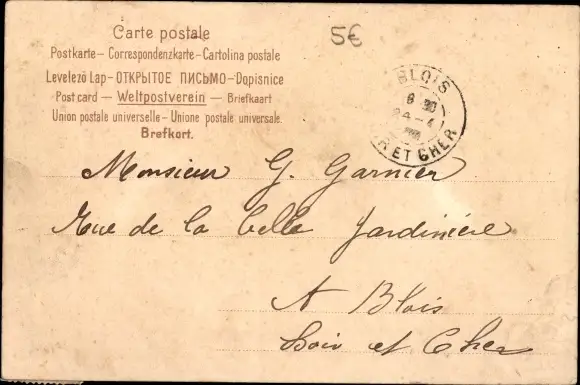 Carte postale
5€
Postkarte – Correspondenzkarte – Cartolina postale
Levelező Lap – ОТКРЫТОЕ ПИСЬМО – Dopisnice
Post card — Weltpostverein — Briefkaart
Union postale universelle – Unione postale universale.
Brefkort.
BLOIS
8 30
24 - 4
ET CHER
Monsieur G. Garnier
Rue de la belle Jardinière
A Blois
Loir et Cher